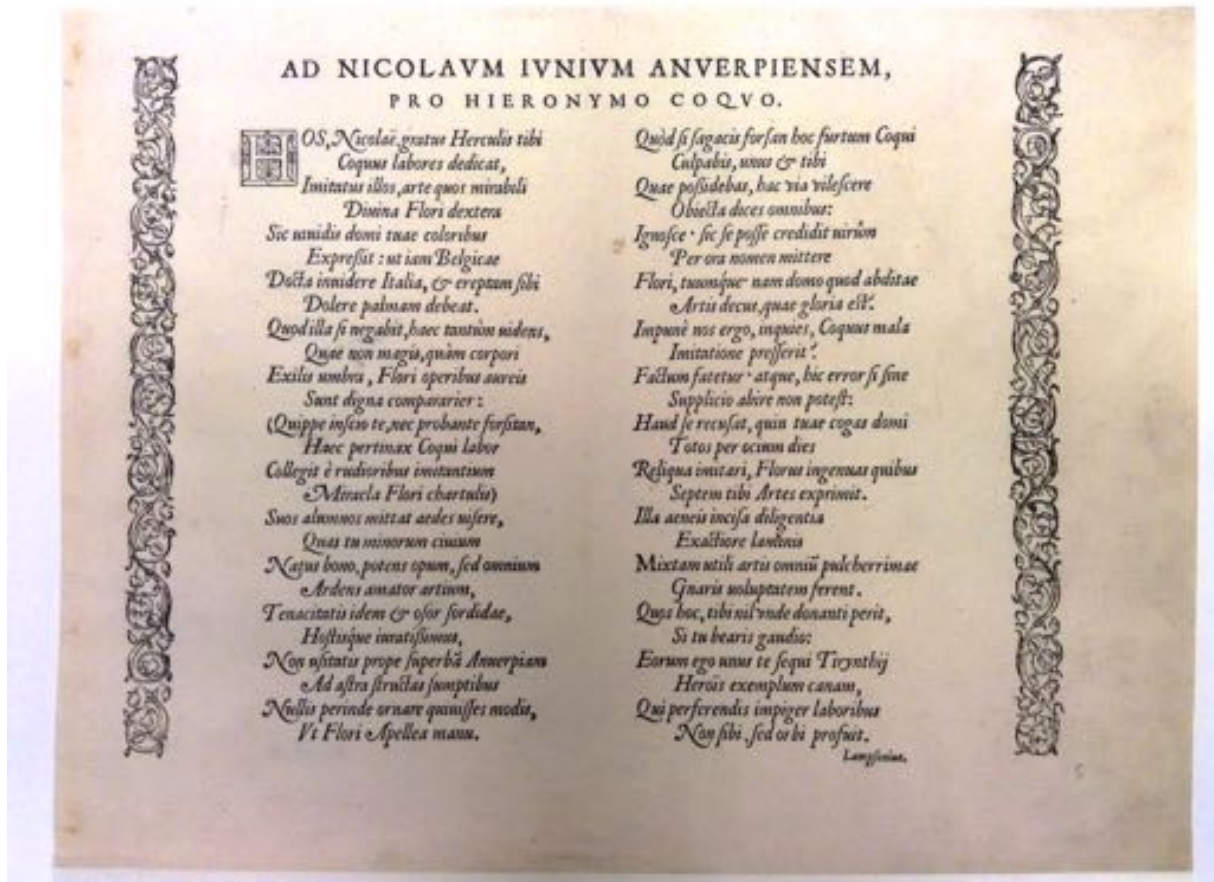 AD NICOLAVM IVNIVM ANVERPIENSEM,
PRO HIERONYMO COQVO.
HOS, Nicolaë, gratus Herculis tibi
Coquus labores dedicat,
Imitatus illos, arte quos mirabili
Diuina Flori dextera
Sic uiuidis domi tuae coloribus
Expreßit: ut iam Belgicae
Docta inuidere Italia, & ereptam sibi
Dolere palmam debeat.
Quod illa si negabit, haec tantùm uidens,
Quae non magis, quàm corpori
Exilis umbra, Flori operibus aureis
Sunt digna compararier:
(Quippe inscio te, nec probante forsitan,
Haec pertinax Coqui labor
Collegit è rudioribus imitantium
Miracla Flori chartulis)
Suos alumnos mittat aedes uisere,
Quas tu minorum ciuium
Natus bono, potens opum, sed omnium
Ardens amator artium,
Tenacitatis idem & osor sordidae,
Hostisque iuratißimus,
Non usitatis prope superbā Anuerpiam
Ad astra structas sumptibus
Nullis perinde ornare quiuisses modis,
Vt Flori Apellea manu.
Quòd si sagacis forsan hoc furtum Coqui
Culpabis, unus & tibi
Quae poßidebas, hac via vilescere
Obiecta dices omnibus:
Ignosce · sic se posse credidit uirûm
Per ora nomen mittere
Flori, tuumque · nam domo quod abditae
Artis decus, quae gloria est?
Impunè nos ergo, inquies, Coquus mala
Imitatione presserit?
Factum fatetur · atque, hic error si sine
Supplicio abire non potest:
Haud se recusat, quin tuae cogas domi
Totos per ocium dies
Reliqua imitari, Florus ingenuas quibus
Septem tibi Artes exprimit.
Illa aeneis incisa diligentia
Exactiore laminis
Mixtam utili artis omniū pulcherrimae
Gnaris uoluptatem ferent.
Quos hoc, tibi nil vnde donanti perit,
Si tu bearis gaudio:
Eorum ego unus te sequi Tirynthij
Heroïs exemplum canam,
Qui perferendis impiger laboribus
Non sibi, sed orbi profuit.
Lampsonius.